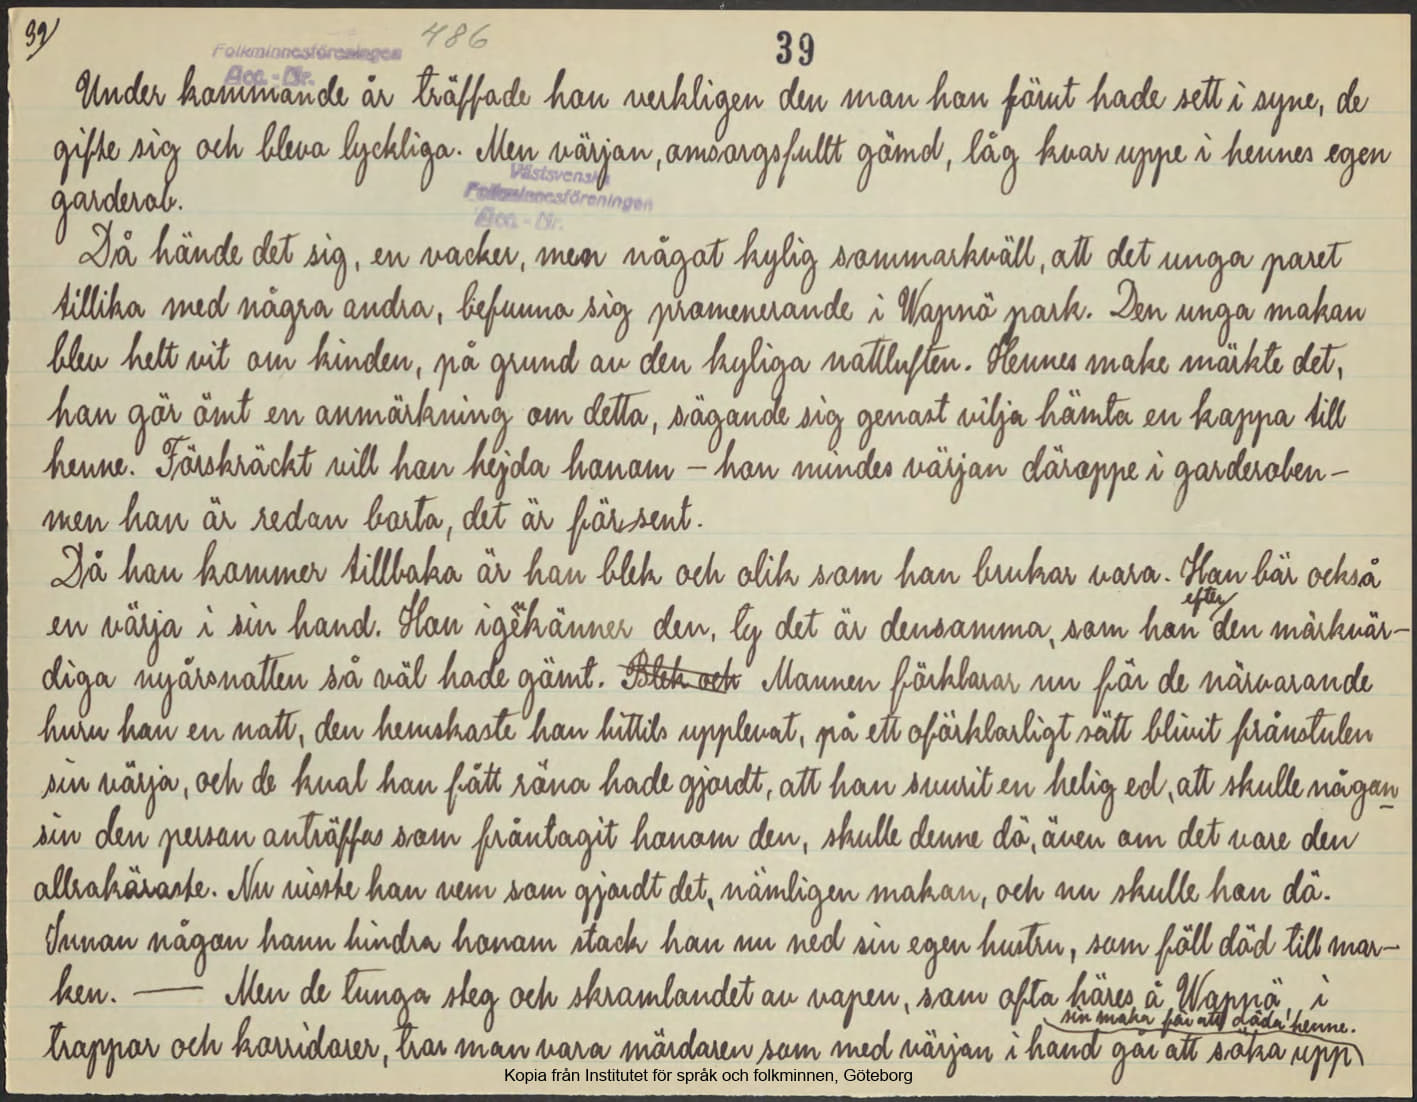 39/
486
39
Folkminnesföreningen
Acc. - Nr.
Under kommande år träffade hon verkligen den man hon förut hade sett i syne, de
gifte sig och bleva lyckliga. Men värjan, omsorgsfullt gömd, låg kvar uppe i hennes egen
Västsvenska
Folkminnesföreningen
Acc. - Nr.
garderob.
Då hände det sig, en vacker, men något kylig sommarkväll, att det unga paret
tillika med några andra, befunno sig promenerande i Wapnö park. Den unga makan
blev helt vit om kinden, på grund av den kyliga nattluften. Hennes make märkte det,
han gör ömt en anmärkning om detta, sägande sig genast vilja hämta en kappa till
henne. Förskräckt vill hon hejda honom – hon mindes värjan däroppe i garderoben –
men han är redan borta, det är för sent.
Då han kommer tillbaka är han blek och olik som han brukar vara. Han bär också
en värja i sin hand. Hon igenkänner den, ty det är densamma, som hon efter den märkvär-
diga nyårsnatten så väl hade gömt. Blek och Mannen förklarar nu för de närvarande
huru han en natt, den hemskaste han hittils upplevat, på ett oförklarligt sätt blivit frånstulen
sin värja, och de kval han fått röna hade gjordt, att han svurit en helig ed, att skulle någon
sin den person anträffas som fråntagit honom den, skulle denne dö, även om det vore den
allrakäraste. Nu visste han vem som gjordt det, nämligen makan, och nu skulle hon dö.
Innan någon hann hindra honom stack han nu ned sin egen hustru, som föll död till mar-
ken. — Men de tunga steg och skramlandet av vapen, som ofta höres å Wapnö, i
trappor och korridorer, tror man vara mördaren som med värjan i hand går att söka upp
sin maka för att "döda" henne.
Kopia från Institutet för språk och folkminnen, Göteborg